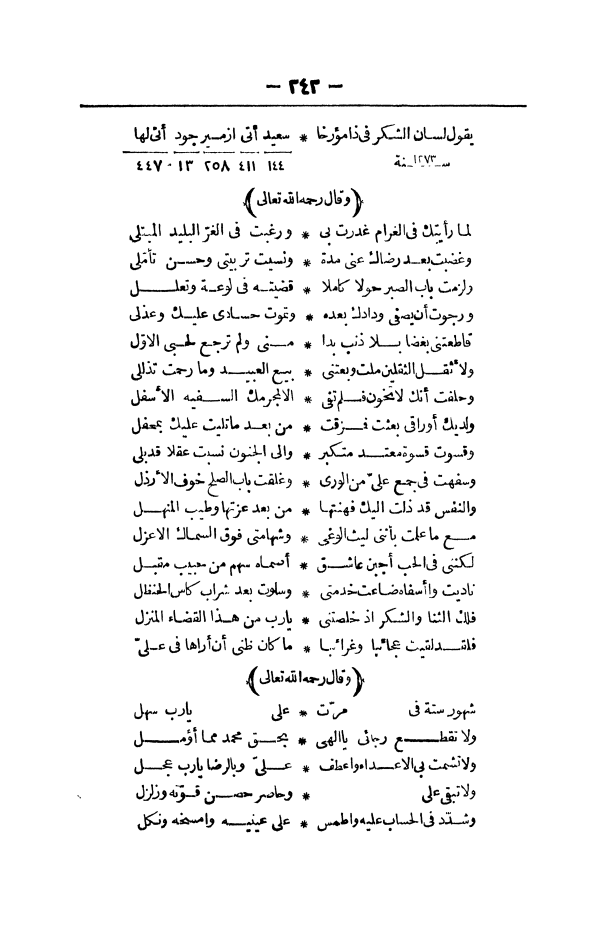 — ٢٤٢ —
يقول لسان الشكر فى ذا مؤرخا * سعيد أتى ازمير جود أتى لها
سـ١٢٧٣ـنة ١٤٤ ٤١١ ٢٥٨ ١٣ ٤٤٧
﴿وقال رحمه الله تعالى﴾
لما رأيتك فى الغرام غدرت بى * ورغبت فى الغرّ البليد المبتلى
وغضبت بعد رضاك عنى مدة * ونسيت تربيتى وحسن تأملى
ولزمت باب الصبر حولا كاملا * قضيته فى لوعة وتعلل
ورجوت أن يصفى ودادك بعده * وتموت حسادى عليك وعذلى
قاطعتنى بغضا بلا ذنب بدا * منى ولم ترجع لحبى الاوّل
ولأثقل الثقلين ملت وبعتنى * بيع العبيد وما رحمت تذللى
وحلفت أنك لا تخون فلم تفى * الا لمجرمك السفيه الأسفل
ولديك أوراقى بعثت فمزقت * من بعد ما تليت عليك بمحفل
وقسوت قسوة معتد متكبر * والى الجنون نسبت عقلا قد بلى
وسفهت فى جمع علىّ من الورى * وغلقت باب الصلح خوف الأرذل
والنفس قد ذلت اليك فهنتها * من بعد عزتها وطيب المنهل
مع ما علمت بأننى ليث الوغى * وشهامتى فوق السماك الاعزل
لكننى فى الحب أجبن عاشق * أصماه سهم من حبيب مقبل
ناديت وا أسفاه ضاعت خدمتى * وسلوت بعد شراب كاس الحنظل
فلك الثنا والشكر اذ خلصتنى * يارب من هذا القضاء المنزل
فلقد لقيت عجائبا وغرائبا * ما كان ظنى أن أراها فى علىّ
﴿وقال رحمه الله تعالى﴾
شهور ستة فى مرّت * على يارب سهل
ولا تقطع رجائى ياالهى * بحق محمد مما أؤمل
ولا تشمت بى الاعداء واعطف * علىّ وبالرضا يارب عجل
ولا تبقى على * وحاصر حصن قوّته وزلزل
وشدّد فى الحساب عليه واطمس * على عينيه وامسخه ونكل